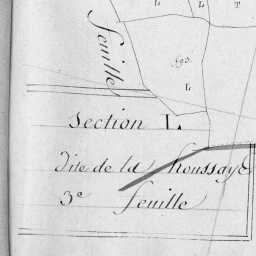 L
L
T
feuille
L
Section L.
dite de la houssaye
3e feuille